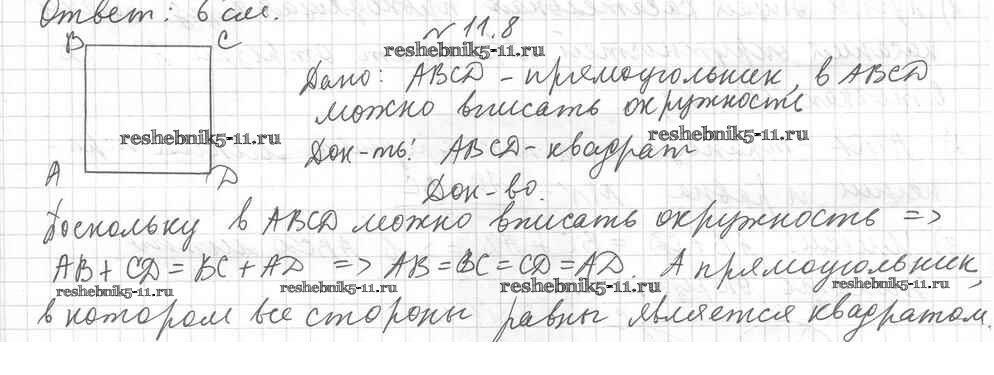 Ответ: 6 см.
№ 11.8
B C
reshebnik5-11.ru
Дано: ABCD - прямоугольник, в ABCD
можно вписать окружность
reshebnik5-11.ru reshebnik5-11.ru
Док-ть: ABCD - квадрат
A D
Док-во.
Поскольку в ABCD можно вписать окружность =>
AB + CD = BC + AD => AB = BC = CD = AD. А прямоугольник,
reshebnik5-11.ru reshebnik5-11.ru reshebnik5-11.ru reshebnik5-11.ru
в котором все стороны равны является квадратом.